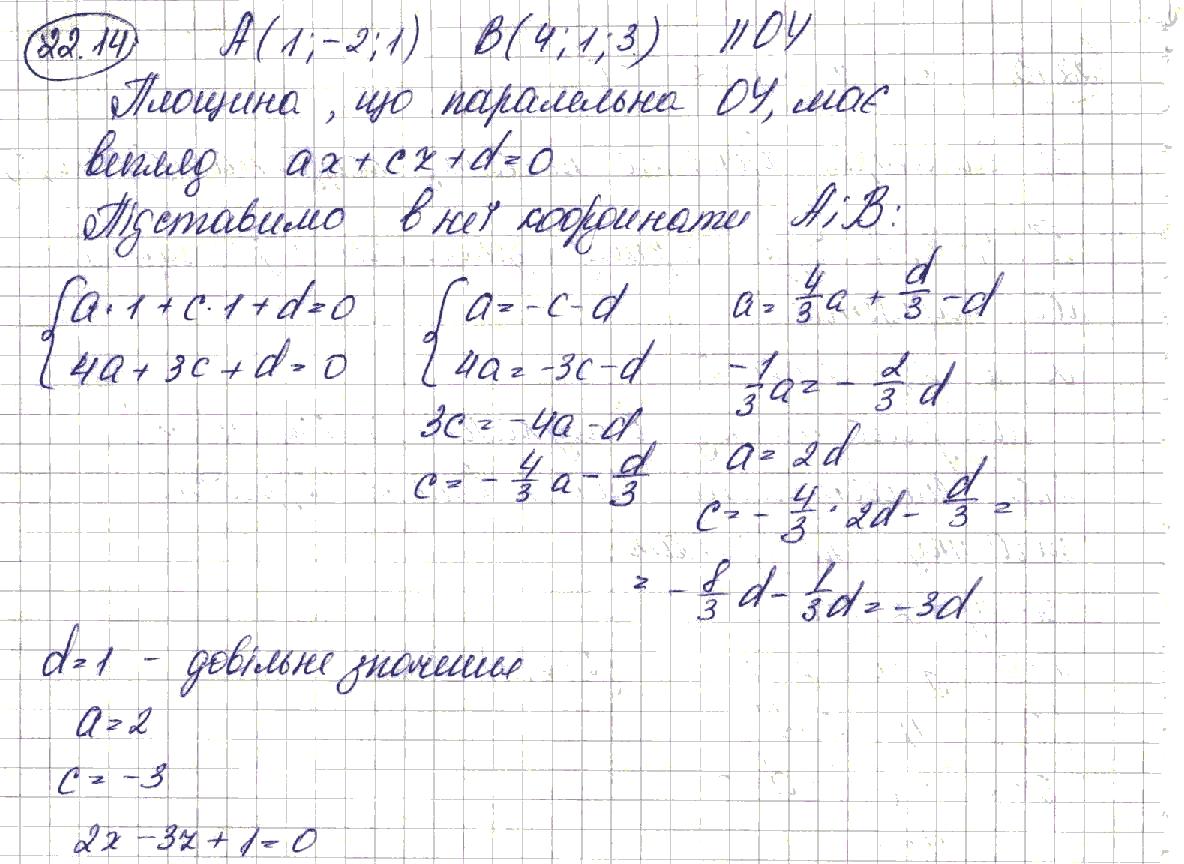 22.14 A(1;-2;1) B(4;1;3) || OY
Площина, що паралельна OY, має
вигляд ax+cz+d=0
Підставимо в неї координати A і B:
{ a·1+c·1+d=0
4a+3c+d=0
{ a=-c-d
4a=-3c-d
3c=-4a-d
c=-4/3 a - d/3
a=4/3 a + d/3 - d
-1/3 a = -2/3 d
a=2d
c=-4/3·2d - d/3 =
= -8/3 d - 1/3 d = -3d
d=1 - довільне значення
a=2
c=-3
2x-3z+1=0